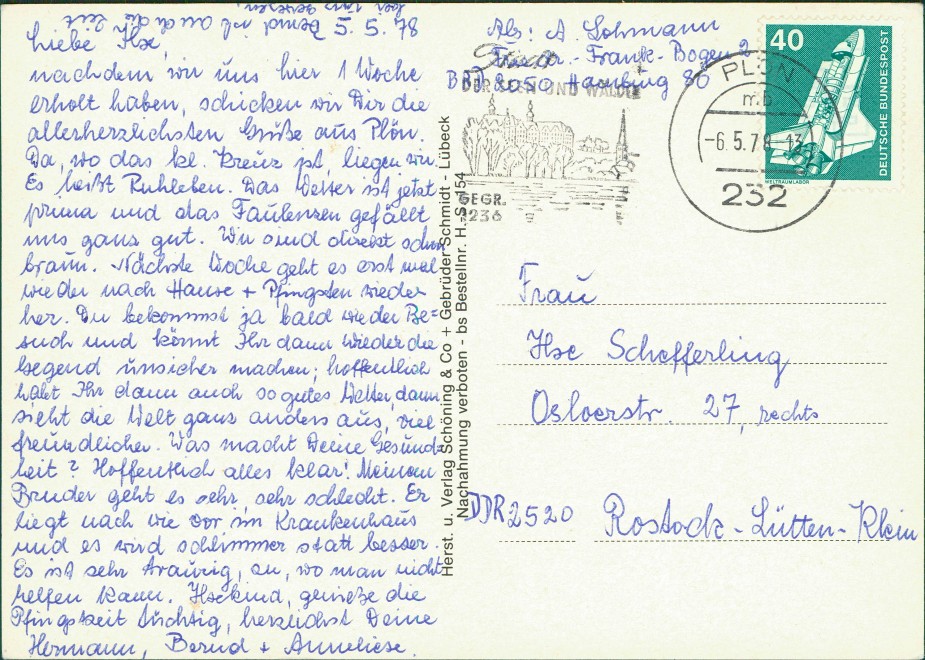 5. 5. 78
Liebe Ilse,
nachdem wir uns hier 1 Woche
erholt haben, schicken wir Dir die
allerherzlichsten Grüße aus Plön.
Da, wo das kl. Kreuz ist, liegen wir.
Es heißt Ruhleben. Das Wetter ist jetzt
prima und das Faulenzen gefällt
uns ganz gut. Wir sind direkt schon
braun. Nächste Woche geht es erst mal
wieder nach Hause + Pfingsten wieder
her. Du bekommst ja bald wieder Be=
such und könnt Ihr dann wieder die
Gegend unsicher machen; hoffentlich
habt Ihr dann auch so gutes Wetter, dann
sieht die Welt ganz anders aus, viel
freundlicher. Was macht Deine Gesund=
heit? Hoffentlich alles klar! Meinem
Bruder geht es sehr, sehr schlecht. Er
liegt nach wie vor im Krankenhaus
und es wird schlimmer statt besser.
Es ist sehr traurig, zu, wo man nicht
helfen kann. Ilsekind, genieße die
Pfingstzeit tüchtig, herzlichst Deine
Hermann, Bernd + Anneliese.
Bernd ist auch die Zeit
bei uns gewesen.
Herst. u. Verlag Schöning & Co + Gebrüder Schmidt - Lübeck
Nachahmung verboten - bs Bestellnr. H.-S. 154
Abs: A. Lohmann
-Frank-Bogen 2
BRD 2050 Hamburg 80
UND WÄLDER
GEGR.
1236
PLÖN
mb
-6.5.78-13
232
40
DEUTSCHE BUNDESPOST
WELTRAUMLABOR
Frau
Ilse Schefferling
Osloerstr. 27, rechts
DDR 2520 Rostock-Lütten-Klein